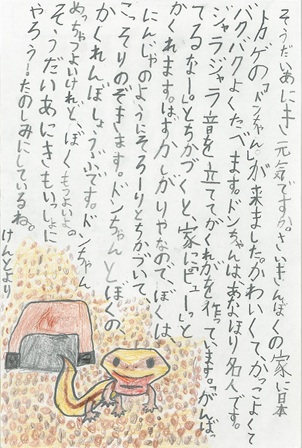 そうだいあにき元気ですか。さいきんぼくの家に日本
トカゲの「ドンちゃん」が来ました。かわいくて、かっこよくて
バクバクよくたべます。ドンちゃんは、あなほり名人です。
ジャラジャラ音を立てて、かくれがを作っています。「がんばっ
てるなー。」とちかづくと、家にピューっと
かくれます。はずかしがりやなので、ぼくは、
にんじゃのようにそろーりとちかづいて、
こっそりのぞきます。ドンちゃんとぼくの、
かくれんぼしょうぶです。ドンちゃん
めっちゃつよいけれど、ぼくもつよいよ。
そうだいあにきもいっしょに
やろう!たのしみにしているね。
けんとより